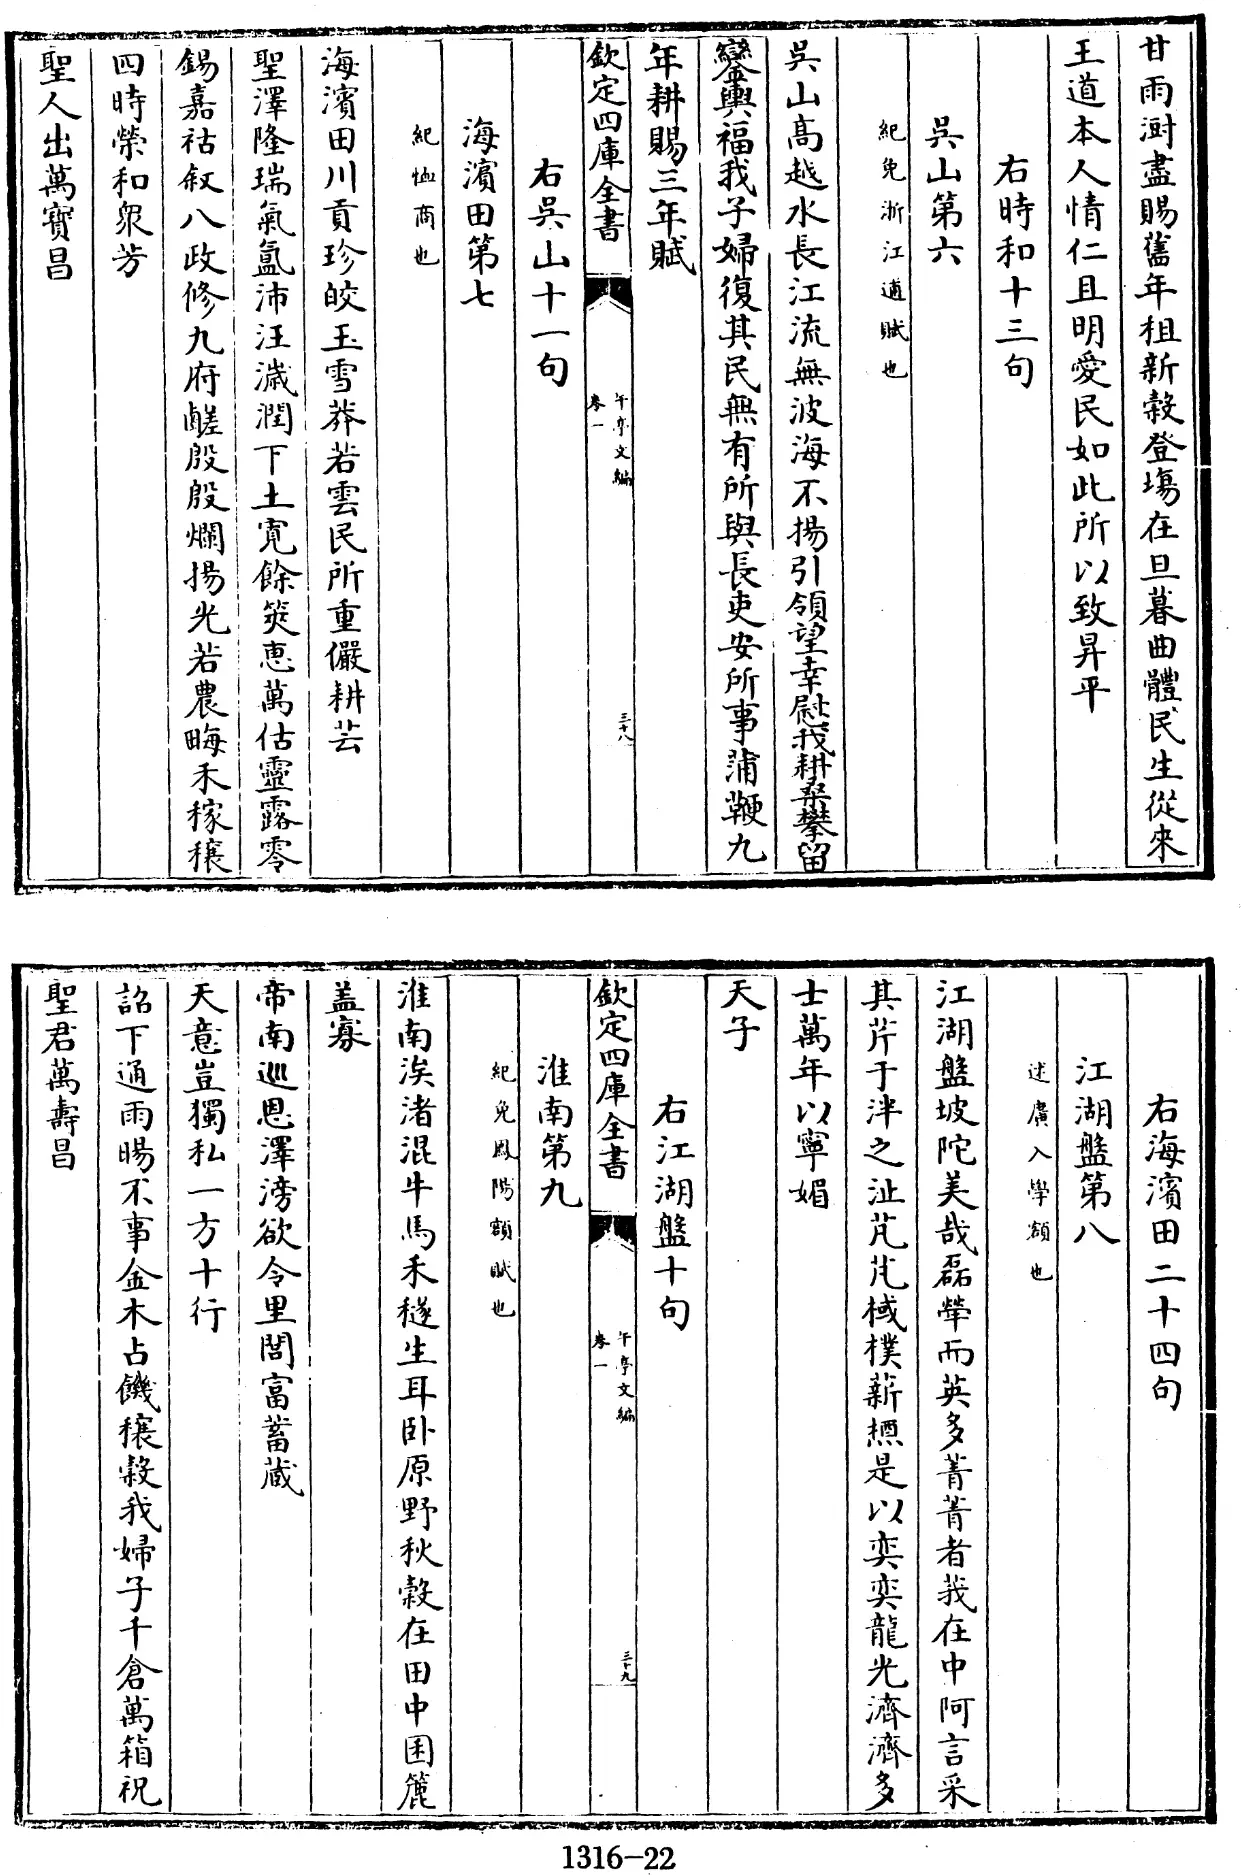 甘雨澍盡賜舊年租新穀登塲在旦暮曲體民生從來
王道本人情仁且明愛民如此所以致昇平
右時和十三句
吳山第六
紀免浙江逋賦也
吳山高越水長江流無波海不揚引領望幸慰我耕桑攀留
鑾輿福我子婦復其民無有所與長吏安所事蒲鞭九
年耕賜三年賦
欽定四庫全書
午亭文編
卷一
三十八
右吳山十一句
海濱田第七
紀恤商也
海濱田川貢珍皎玉雪莽若雲民所重儼耕芸
聖澤隆瑞氣氤沛汪濊潤下土寛餘筴恵萬估靈露零
錫嘉祜叙八政修九府鹺殷殷爛揚光若農畮禾稼穰
四時榮和衆芳
聖人出萬寳昌
右海濱田二十四句
江湖盤第八
述廣入學額也
江湖盤坡陀美哉磊犖而英多菁菁者莪在中阿言采
其芹于泮之沚芃芃棫樸薪槱是以奕奕龍光濟濟多
士萬年以寧媚
天子
欽定四庫全書
午亭文編
卷一
三十九
右江湖盤十句
淮南第九
紀免鳳陽額賦也
淮南涘渚混牛馬禾穟生耳卧原野秋穀在田中囷簏
盖寡
帝南巡恩澤滂欲令里閭富蓄蔵
天意豈獨私一方十行
詔下通雨暘不事金木占饑穰穀我婦子千倉萬箱祝
聖君萬壽昌
1316-22